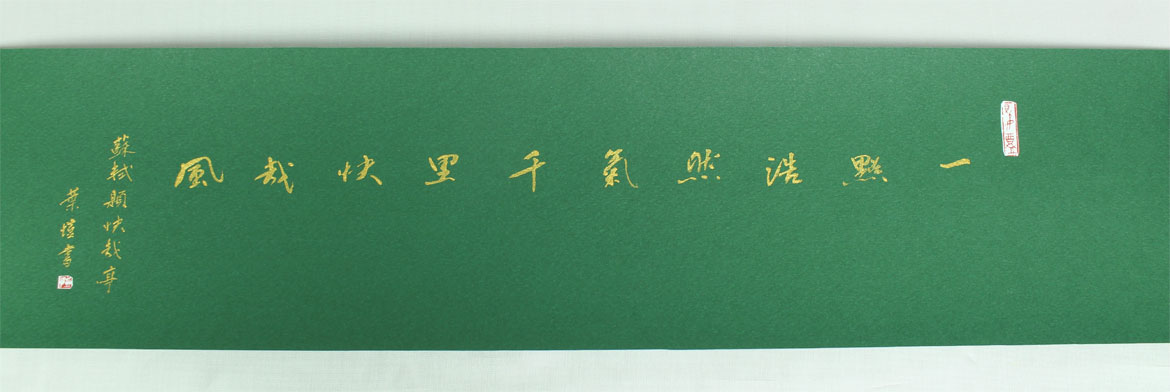 一點浩然氣千里快哉風
蘇軾題快哉亭
葉愷書